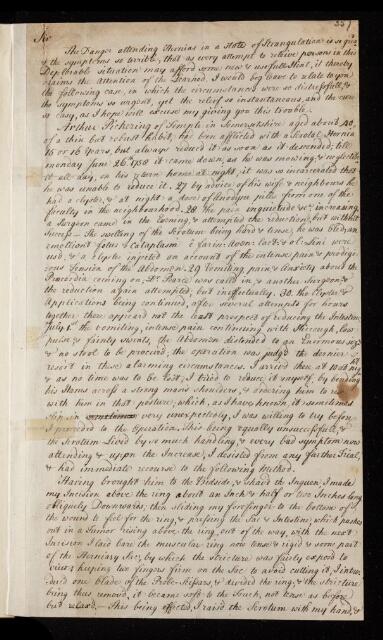 337
Sir
The Danger attending Hernias in a state of Strangulation is so great
& the symptoms so terrible, that as every attempt to relieve persons in this
Deplorable situation may afford some new & usefull Hint, & thereby
claims the Attention of the Learned, I would beg leave to relate to you
the following case, in which the circumstances were so distressfull, &
the Symptoms so urgent, yet the relief so instantaneous, and the cure
so easy, as I hope will excuse my giving you this trouble.
Arthur Pickering of Temple in Somersetshire aged about 40,
of a thin but robust Habit, has been afflicted with a Scrotal Hernia
15 or 16 Years, but always reduced it as soon as it descended; till
monday June 26th 1758 it came down, as he was mowing, & neglected
it all day, on his return home at night, it was so incarcerated that
he was unable to reduce it. 27 by advice of his wife & neighbours he
had a clyster, & at night a dose of Anodyne pills from one of the
faculty in the neighbourhood. 28 the pain inquietude &c. increasing,
a Surgeon came in the Evening, & attempted the reduction, but without
success. The swelling of the Scrotum being hard & tense, he was bled, an
emollient fotus & Cataplasm è farin: Aven: Lact: & ol: Lini were
used, & a Clyster injected on account of the intense pain & prodigi-
ous tension of the Abdomen. 29 Vomiting, pain & Anxiety about the
Præcordia coming on, Mr. Pearce was call'd in, & another Surgeon, &
the reduction again attempted, but ineffectually. 30. the Clyster &
Applications being continued, after several attempts for hours
together there appeard not the least prospect of reducing the Intestine
July 1st the vomiting, intense pain continuing with Hiccough, low
pulse & fainty sweats, the Abdomen distended to an Enormous size
& no stool to be procured, the operation was judg'd the dernier
resort in these alarming circumstances. I arrived there at
& as no time was to be lost, I tried to reduce it myself, by bending
his Hams across a strong mans shoulders, & ordering him to
with him in that posture, which, as I have known it sometimes
slip in very unexpectedly, I was willing to try before
I proceeded to the Operation. This being equally unsuccessfull, &
the Scrotum Livid by so much handling, & every bad symptom now
attending & upon the Increase, I desisted from any farther Trial,
& had immediate recourse to the following Method.
Having brought him to the Bedside, & shav'd the Inguen, I made
my Incision above the ring about an Inch & half or two Inches long
obliquely Downwards; then sliding my forefinger to the bottom of
the wound to feel for the ring, & pressing the Sac & Intestine, which pushes
out in a Tumor rising above the ring, out of the way, with the next
Incision I laid bare the muscular ring now tense & rigid & some part
of the Herniary Sac; by which the Stricture was fairly expos'd to
view; keeping two fingers firm on the Sac to avoid cutting it, I intro-
duc'd one blade of the Probe-Scissars, & divided the ring, & the stricture
being thus remov'd, it became soft to the Touch, not tense as before
but relax'd. This being effected, I rais'd the Scrotum with my hand, &